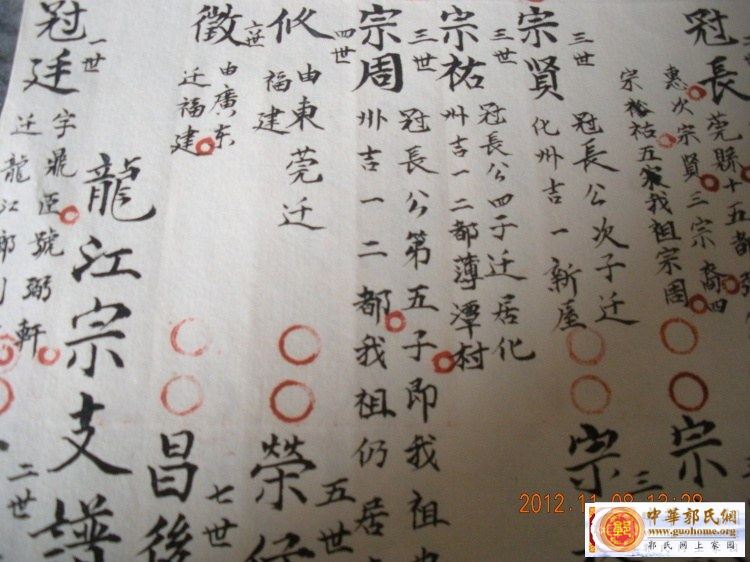 冠長
莞縣十五都
惠次宗賢三宗裔四
宗裕祐五宗我祖宗周
宗
三世
宗賢
三世
冠長公次子迁
化州吉一新屋
宗
三
宗祐
三世
冠長公四子迁居化
州吉一二都薄潭村
宗周
三世
冠長公第五子即我祖
州吉一二都我祖仍居
四世
攸
由東莞迁
福建
榮
五世
徵
六世
由廣东
迁福建
昌後
七世
龍江宗支譜
冠廷
一世
字鼎臣號弼軒
迁龍江
二世
2012.11.08 13:28
中華郭氏網
www.guohome.org
郭氏网上家园